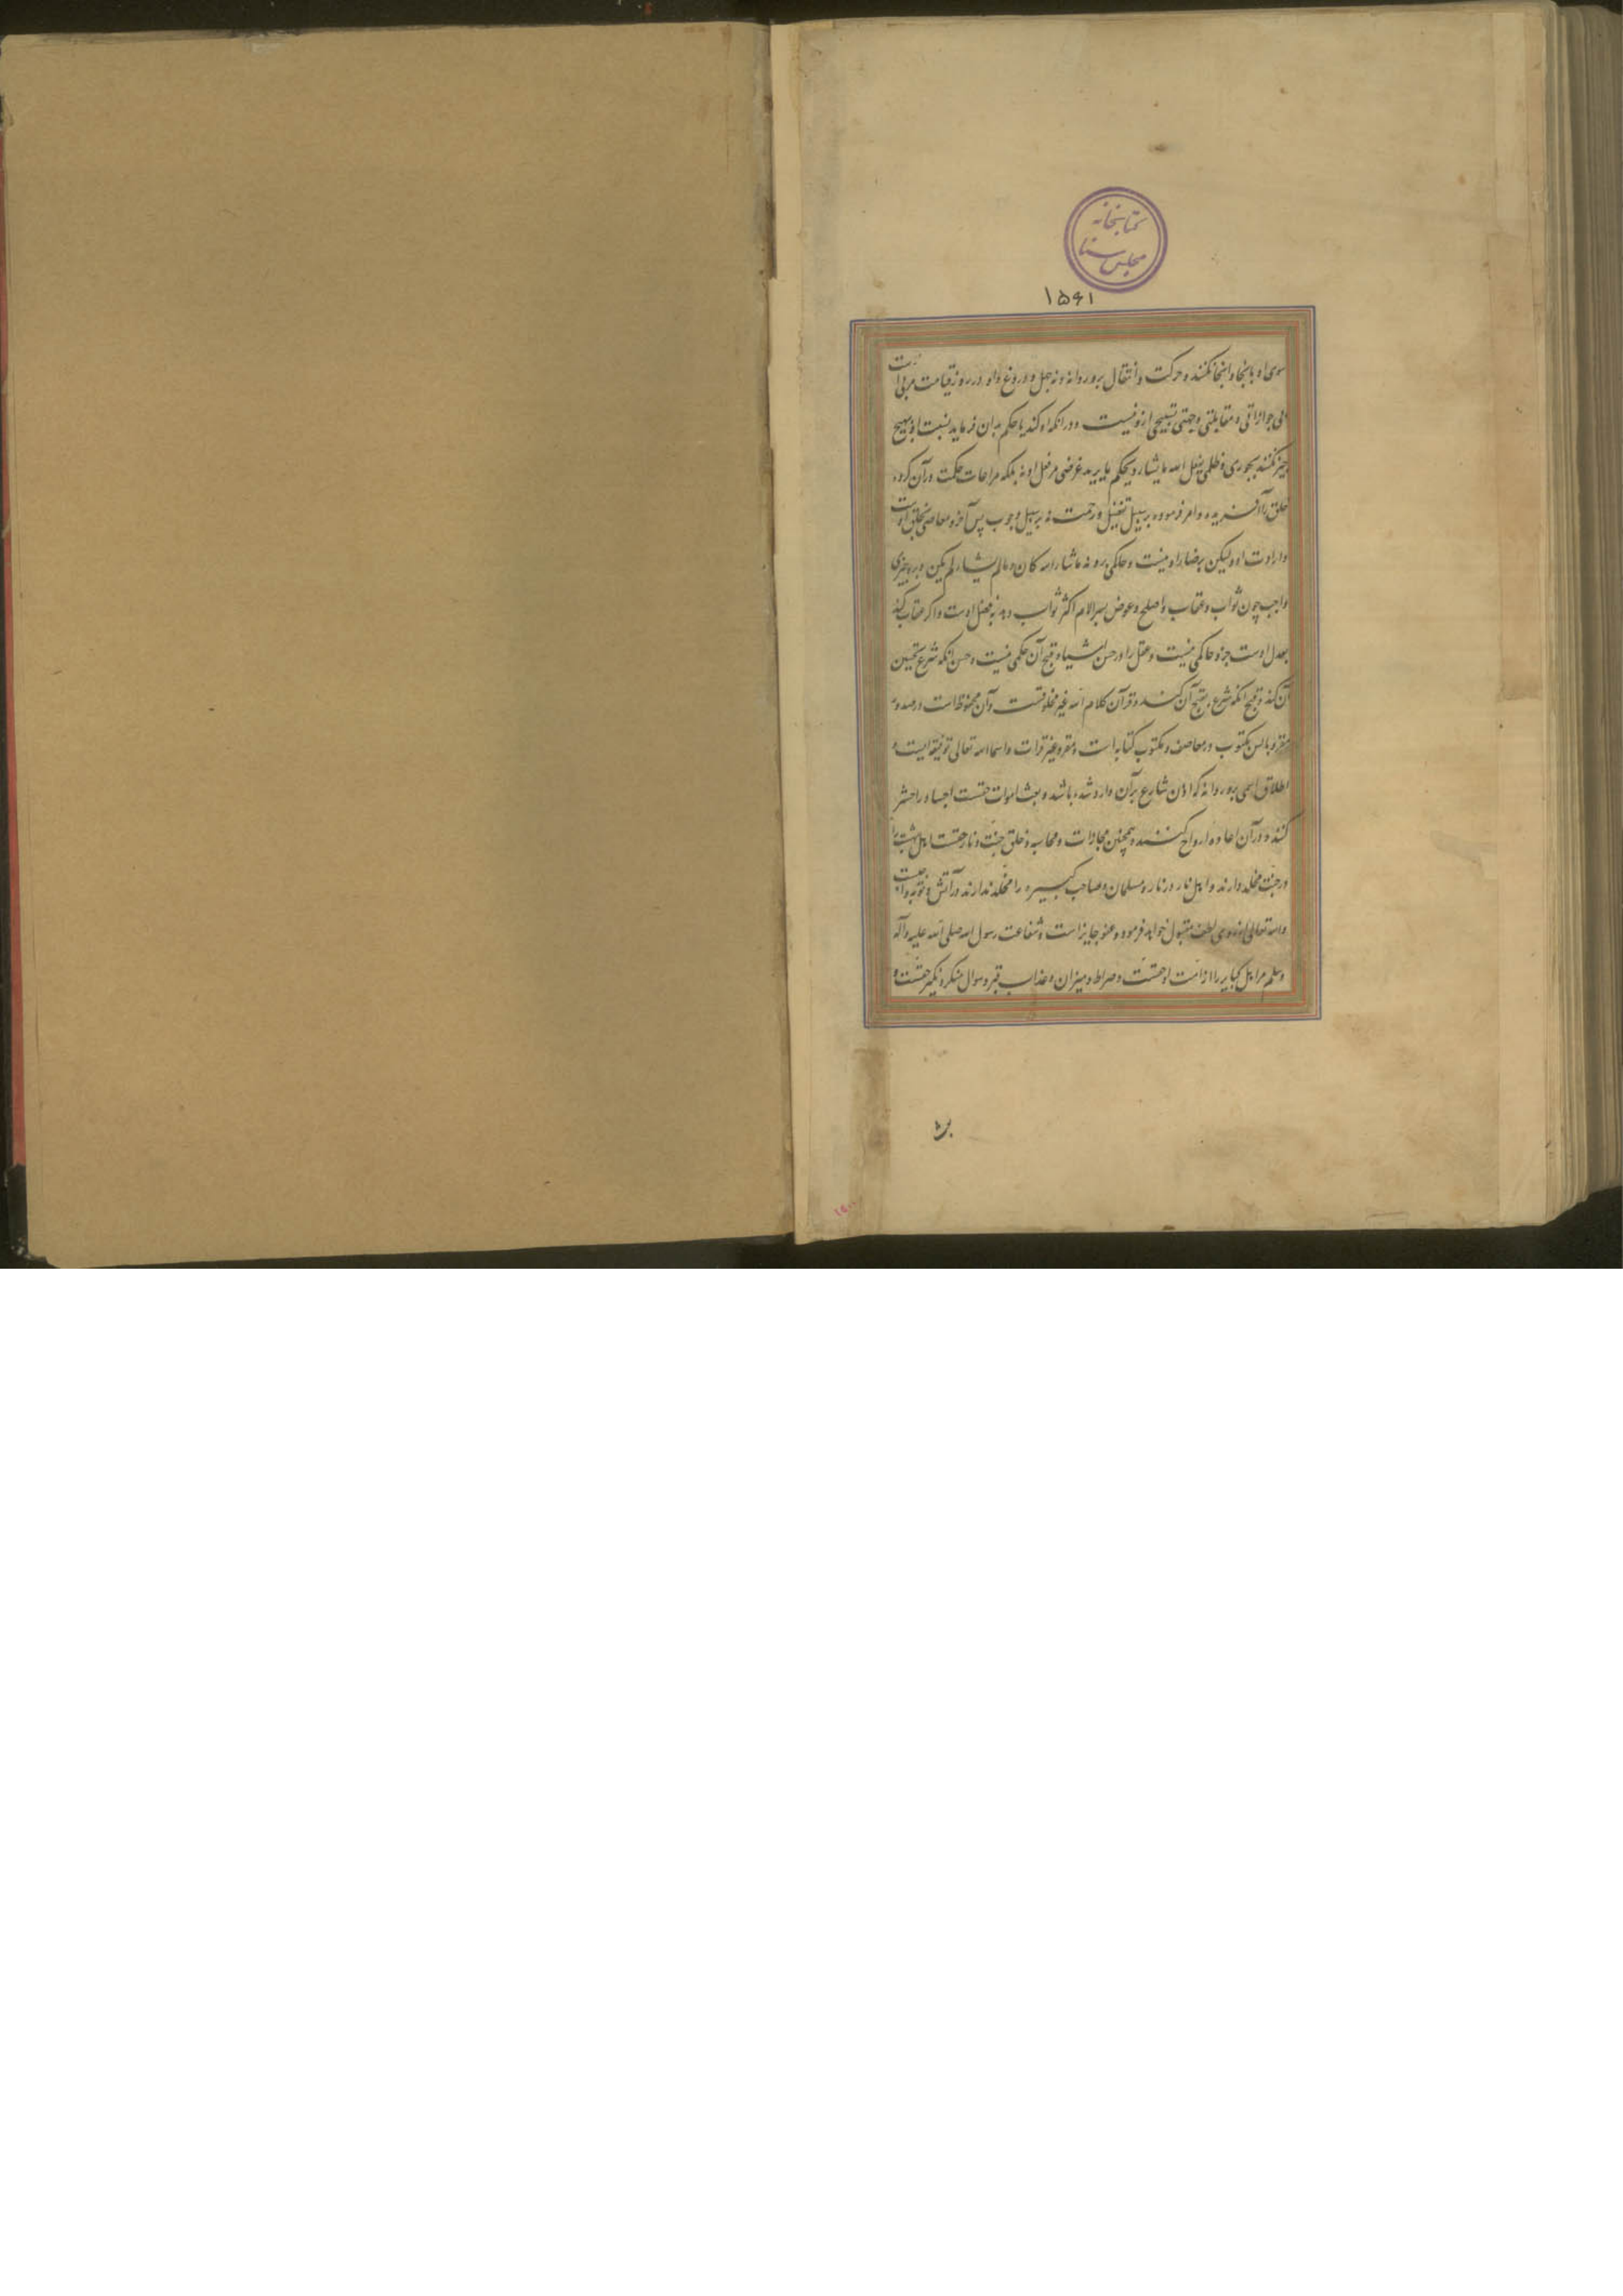 کتابخانه
مجلس سنا
۱۵۶۱
سوی او باینجا و آنجا نکنند و حرکت و انتقال برو روا نه و نه جهل و دروغ و او در روز قیامت مرئی است
بی جوازاتی و مقابلتی و جهتی قبیحی ازو نیست و در انکه او کند یا حکم بدان فرماید نسبت او بهیچ
چیز نکنند بجوری و ظلمی یفعل الله ما یشاء و یحکم ما یرید غرضی مر فعل او نه بلکه مراعات حکمت در آن کرده
خلق را آفریده و امر فرموده بر سبیل تفضل و رحمت نه بر سبیل وجوب پس آخر و معاصی بخلق اوست
و ارادت او و لیکن برضاء او نیست و حاکمی برو نه ما شاء الله کان و ما لم یشاء لم یکن و برو چیزی
واجب چون ثواب و عقاب و اصلح و عوض بر آلام اگر ثواب دهد بفضل اوست و اگر عقاب کند
بعدل اوست جزو حاکمی نیست و عقل را در حسن اشیا و قبح آن حکمی نیست و حسن انکه شرع تحسین
آن کند و قبح انکه شرع تقبیح آن کند و قرآن کلام الله غیر مخلوقست و آن محفوظ است در صدور
مقرو بالسن مکتوب در مصاحف و مکتوب کتابه است و مقرو غیر قرات و اسماء الله تعالی توقیفیست و
اطلاق اسمی برو روا نه که اذن شارع بر آن وارد شده باشد و بعث اموات حقست اجساد را حشر
کنند و در آن اعاده ارواح کنند و همچنین مجازات و محاسبه و خلق جنت و نار حقست اهل بهشت را
در جنت مخلد دارند و اهل نار در نار و مسلمان و صاحب کبیره را مخلد ندارند در آتش و توبه واجبست
و الله تعالی از روی لطف مقبول خواهد فرمود و عفو جایز است و شفاعت رسول الله صلی الله علیه و آله
و سلم مر اهل کبایر را از امت او حقست و صراط و میزان و عذاب قبر و سوال منکر و نکیر حقست و